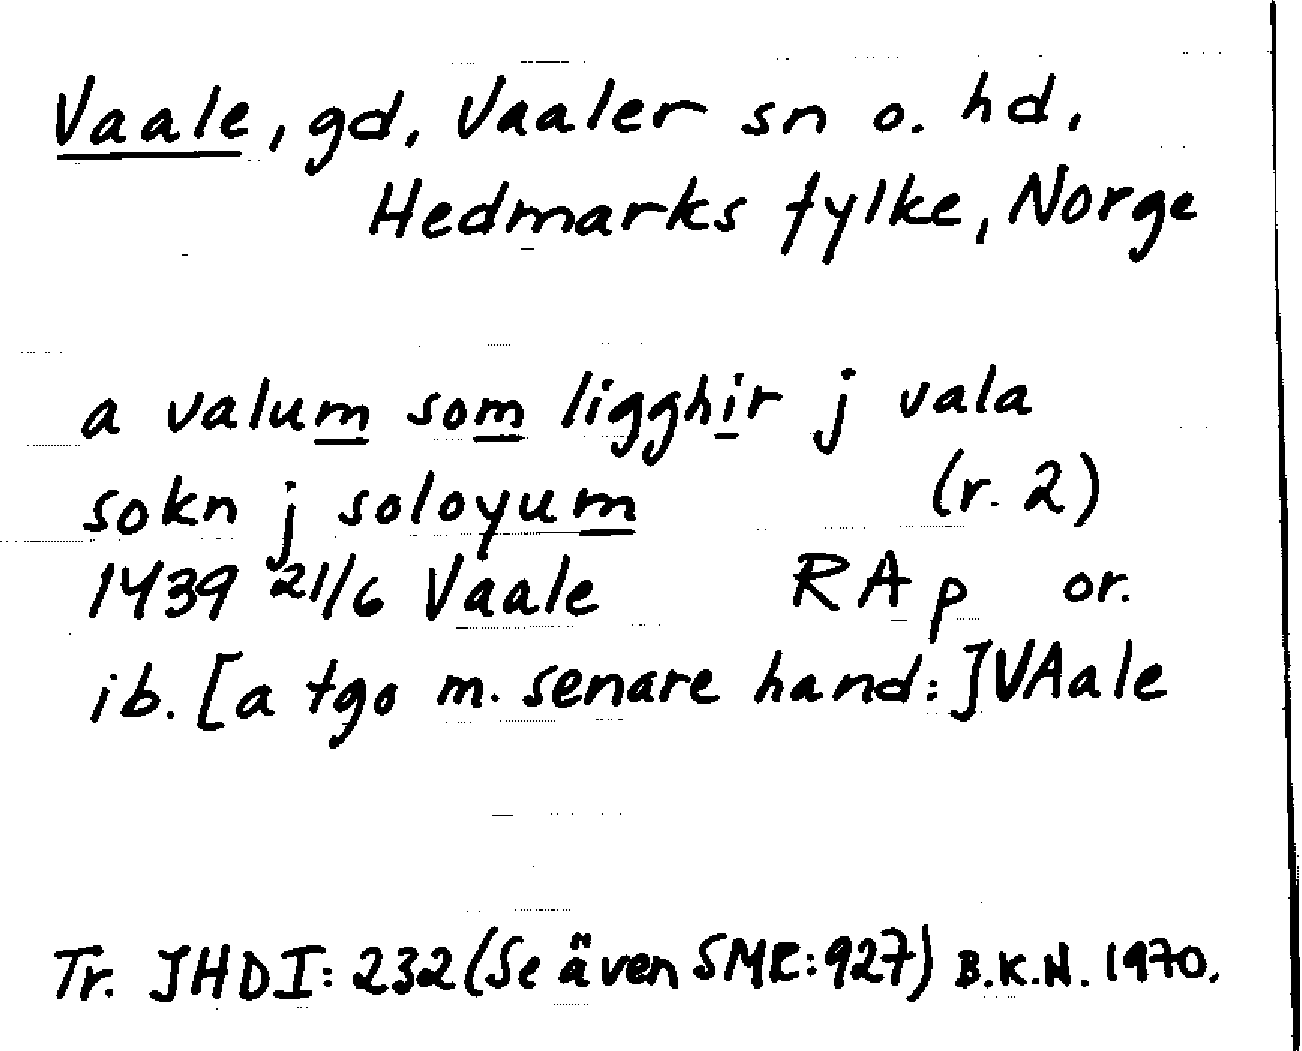 Vaale, gd, Vaaler sn o. hd,
Hedmarks fylke, Norge
a valum som ligghir j vala
sokn j soloyum (r. 2)
1439 21/6 Vaale RAp or.
ib. [a tgo m. senare hand:] VAale
Tr. JHDI: 232 (Se även SMR:927) B.K.N. 1970.